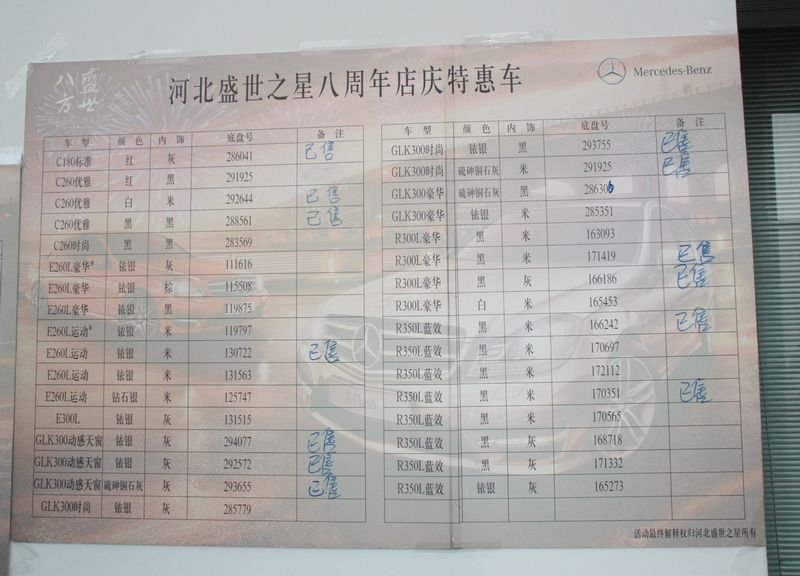 盛世
八方
河北盛世之星八周年店庆特惠车
Mercedes-Benz
车 型 颜 色 内 饰 底盘号 备 注
C180标准 红 灰 286041 已售
C260优雅 红 黑 291925
C260优雅 白 米 292644 已售
C260优雅 黑 黑 288561 已售
C260时尚 黑 黑 283569
E260L豪华* 铱银 灰 111616
E260L豪华 铱银 棕 115508
E260L豪华 铱银 黑 119875
E260L运动* 铱银 米 119797
E260L运动 铱银 米 130722 已售
E260L运动 铱银 米 131563
E260L运动 钻石银 米 125747
E300L 铱银 灰 131515
GLK300动感天窗 铱银 灰 294077 已售
GLK300动感天窗 铱银 灰 292572 已售
GLK300动感天窗 硫砷铜石灰 灰 293655 已售
GLK300时尚 铱银 灰 285779
车 型 颜 色 内 饰 底盘号 备 注
GLK300时尚 铱银 黑 293755 已售
GLK300时尚 硫砷铜石灰 米 291925 已售
GLK300豪华 硫砷铜石灰 黑 286306
GLK300豪华 铱银 米 285351
R300L豪华 黑 米 163093
R300L豪华 黑 米 171419 已售
R300L豪华 黑 灰 166186 已售
R300L豪华 白 米 165453
R350L蓝效 黑 米 166242 已售
R350L蓝效 黑 米 170697
R350L蓝效 黑 米 172112
R350L蓝效 黑 米 170351 已售
R350L蓝效 黑 米 170565
R350L蓝效 黑 灰 168718
R350L蓝效 黑 灰 171332
R350L蓝效 铱银 灰 165273
活动最终解释权归河北盛世之星所有